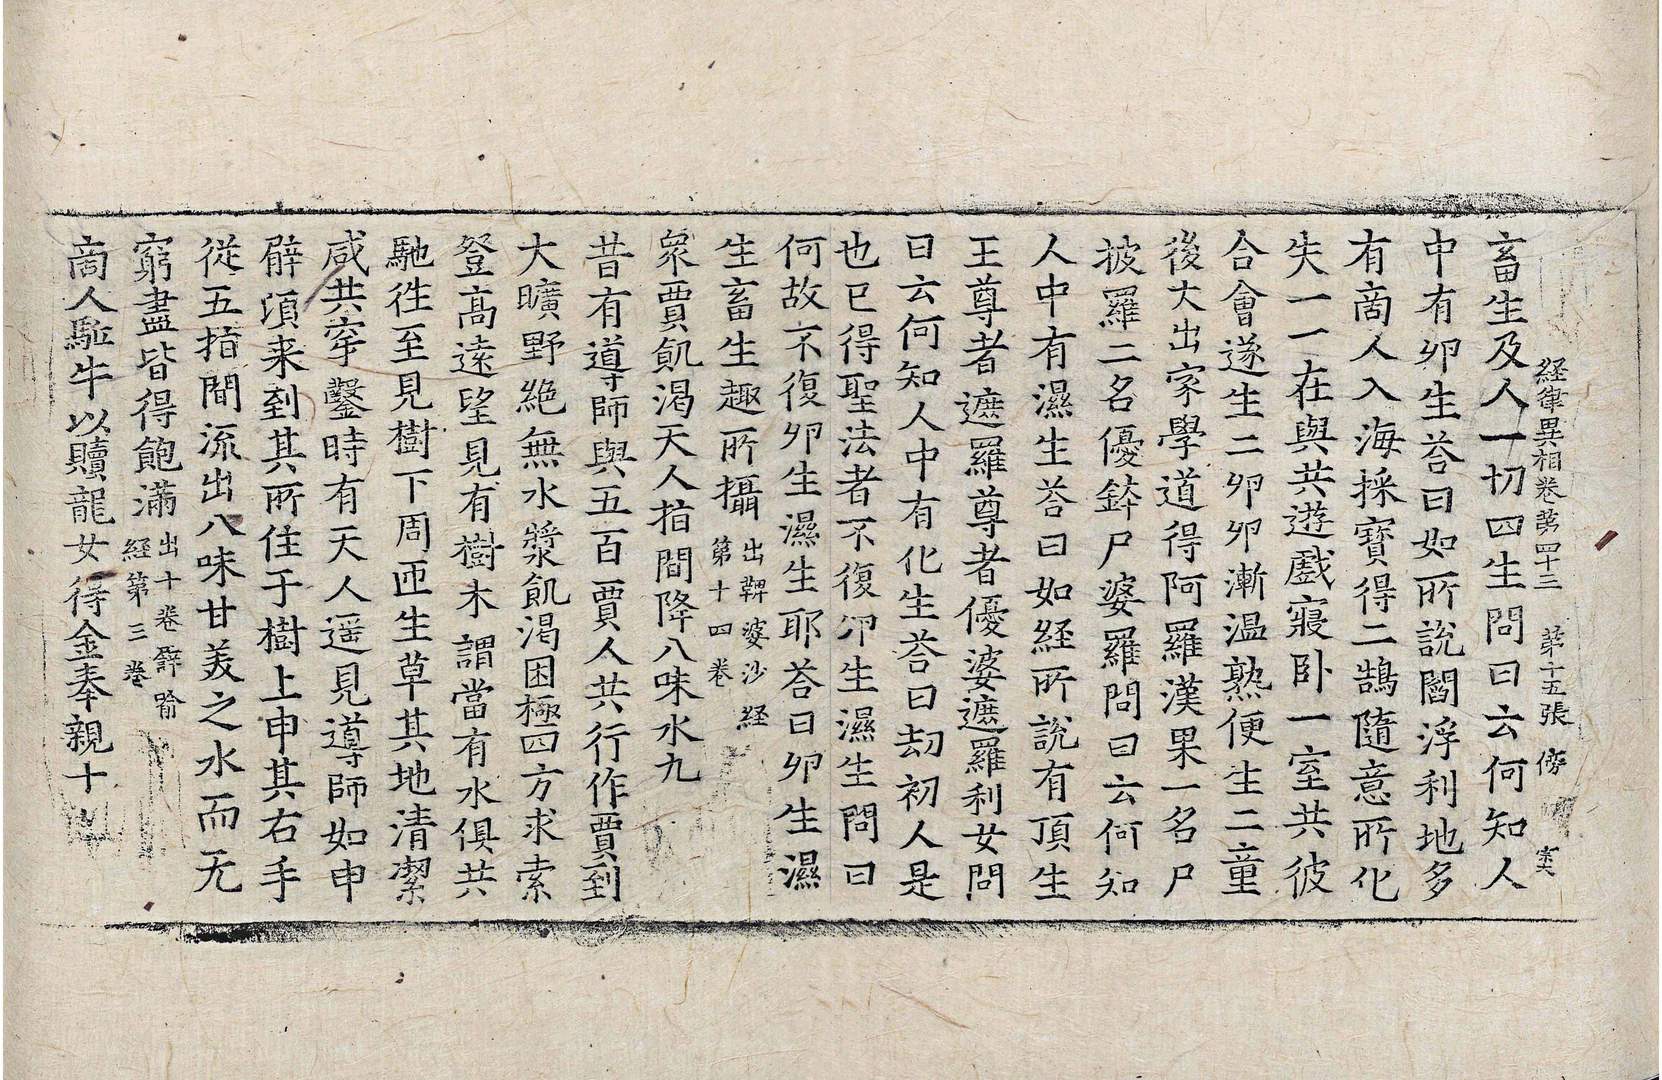 経律異相卷第四十三 第十五張 傍
畜生及人一切四生問曰云何知人
中有卵生荅曰如所說閻浮利地多
有商人入海採寶得二鵠隨意所化
失一一在與共遊戲寢卧一室共彼
合會遂生二卵卵漸温熟便生二童
後大出家學道得阿羅漢果一名尸
披羅二名優鉢尸婆羅問曰云何知
人中有濕生荅曰如経所說有頂生
王尊者遮羅尊者優婆遮羅利女問
曰云何知人中有化生荅曰劫初人是
也已得聖法者不復卵生濕生問曰
何故不復卵生濕生耶荅曰卵生濕
生畜生趣所攝 出鞞婆沙経
第十四卷
衆賈飢渴天人指間降八味水九
昔有導師與五百賈人共行作賈到
大曠野絶無水漿飢渴困極四方求索
登高遠望見有樹木謂當有水俱共
馳徃至見樹下周匝生草其地清潔
咸共穿鑿時有天人遥見導師如申
臂湏来到其所住于樹上申其右手
從五指間流出八味甘美之水而无
窮盡皆得飽滿 出十卷譬喻
経第三卷
商人駈牛以贖龍女得金奉親十